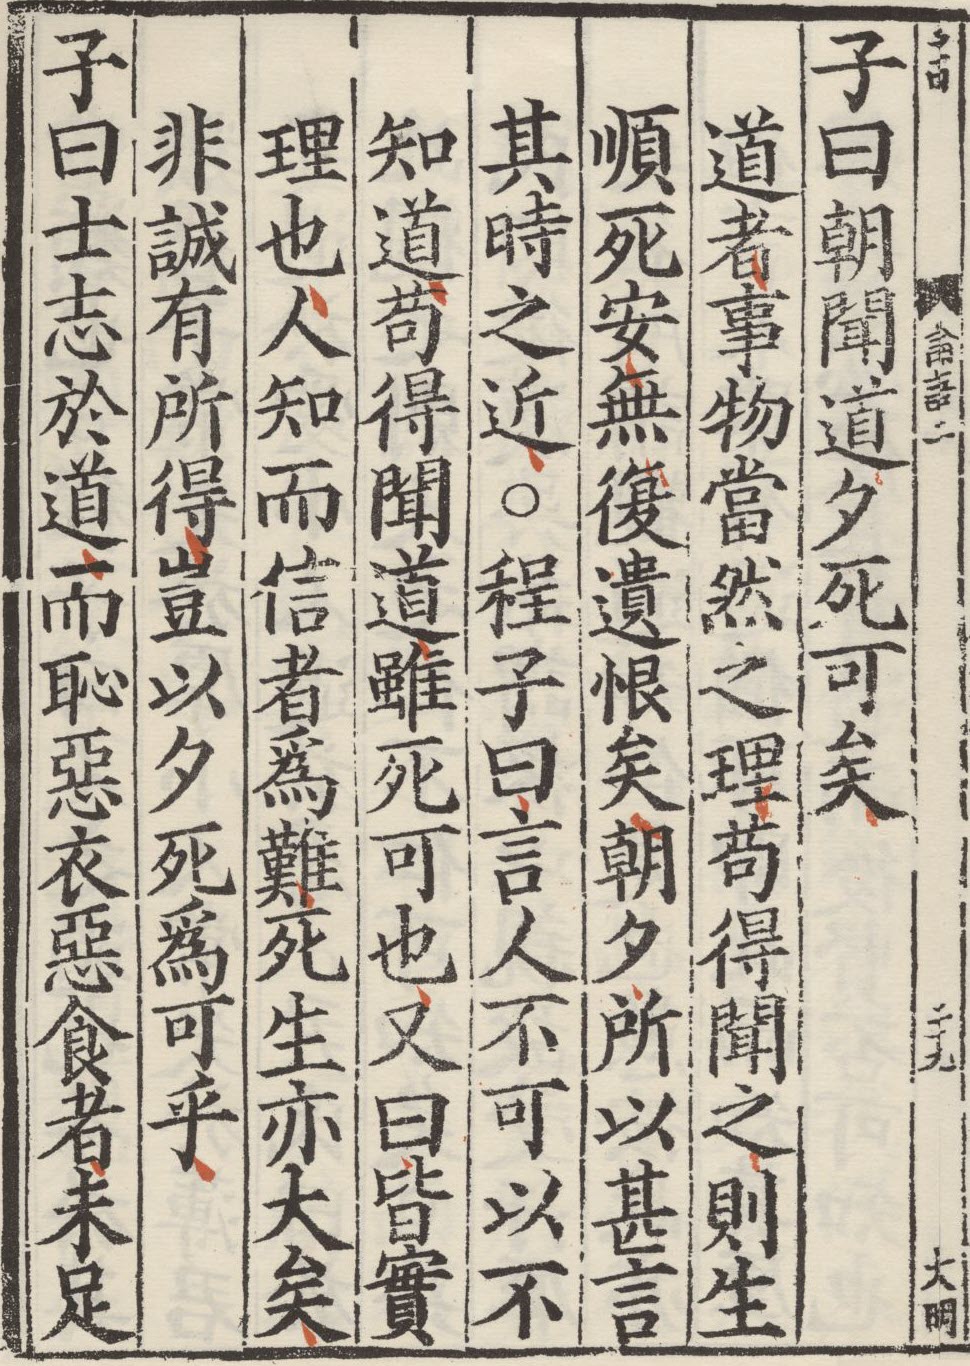 論語二
二十九
大明
子曰朝聞道夕死可矣
道者事物當然之理苟得聞之則生
順死安無復遺恨矣朝夕所以甚言
其時之近○程子曰言人不可以不
知道苟得聞道雖死可也又曰皆實
理也人知而信者爲難死生亦大矣
非誠有所得豈以夕死爲可乎
子曰士志於道而恥惡衣惡食者未足